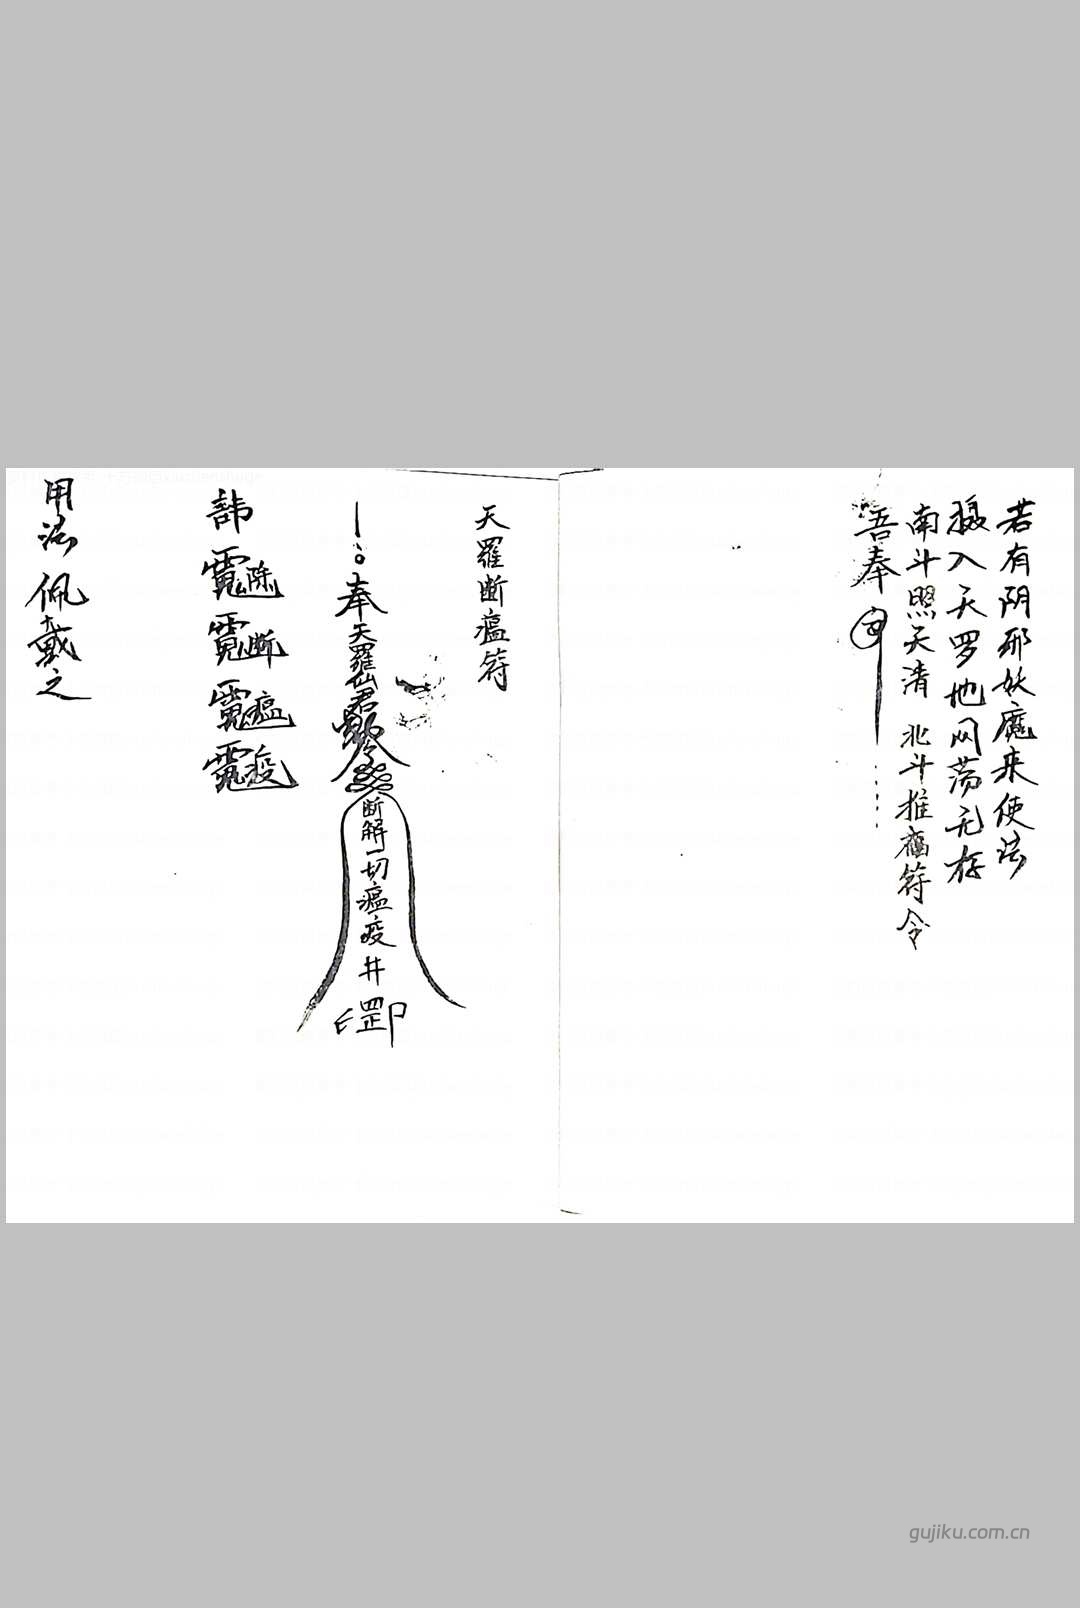 若有阴邪妖魔来使法
摄入天罗地网荡无存
南斗照天清 北斗推
符令
吾奉
天羅断瘟符
奉天羅仙君
断解一切瘟疫井
罡印
諱
除
断
瘟
疫
用法佩戴之
gujiku.com.cn